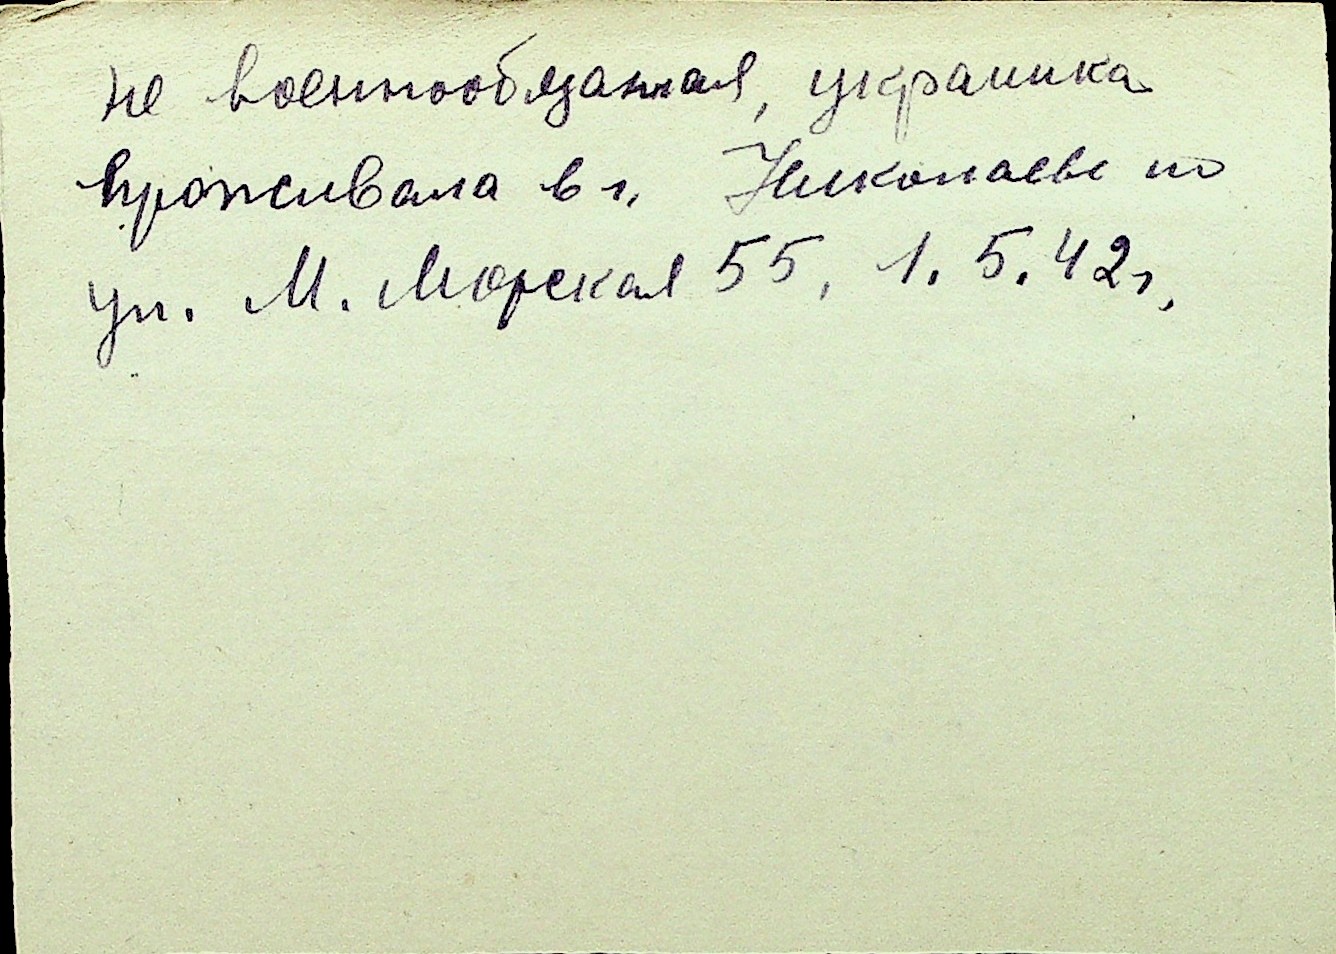 не военнообязанная, украинка
проживала в г. Николаеве по
ул. М. Морская 55, 1.5.42г.